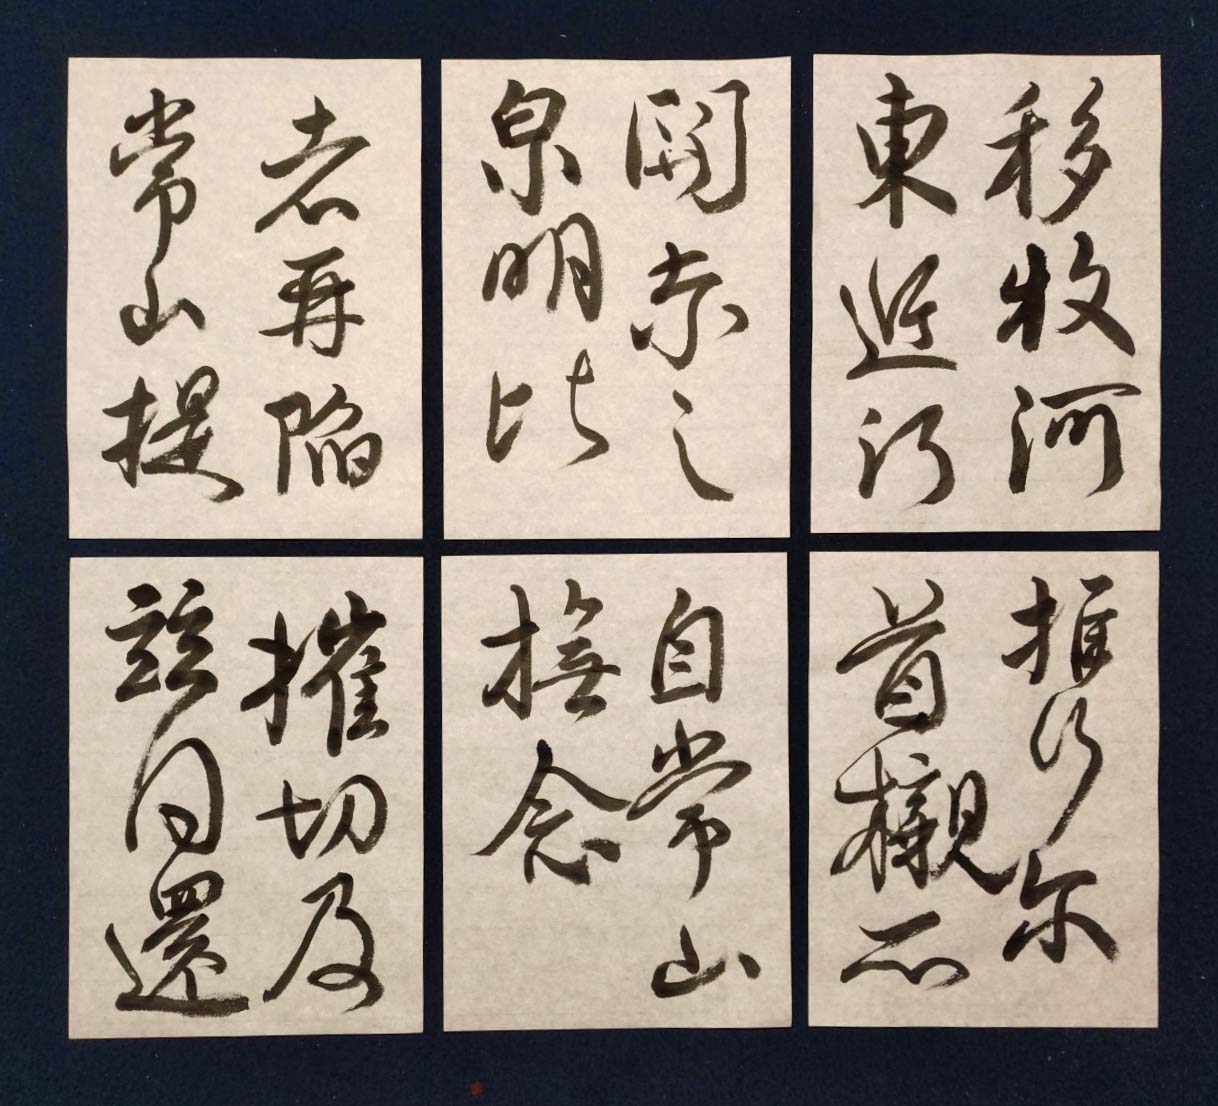 移牧河
東近河
關尔之
泉明比
者再陷
常山提
携尔
首櫬亦
自常山
撫念
摧切及
茲同還